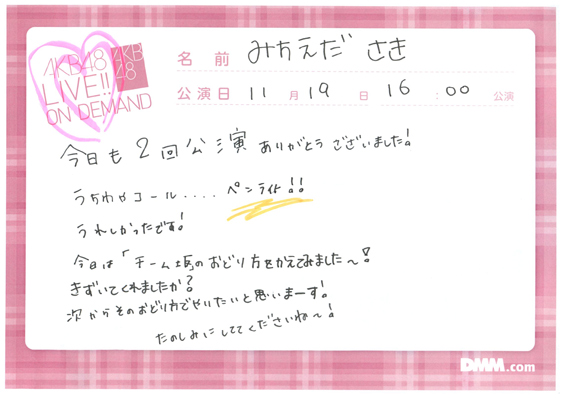 AKB48
LIVE!!
ON DEMAND
AKB
48
名前 みちえだ さき
公演日 11月19日 16:00公演
今日も2回公演ありがとうございました!
うちわやコール....ペンライト!!
うれしかったです!
今日は「チーム坂のおどり方をかえてみました〜!
きずいてくれましたか?
次からそのおどり方でやりたいと思いまーす!
たのしみにしててくださいね〜!
DMM.com